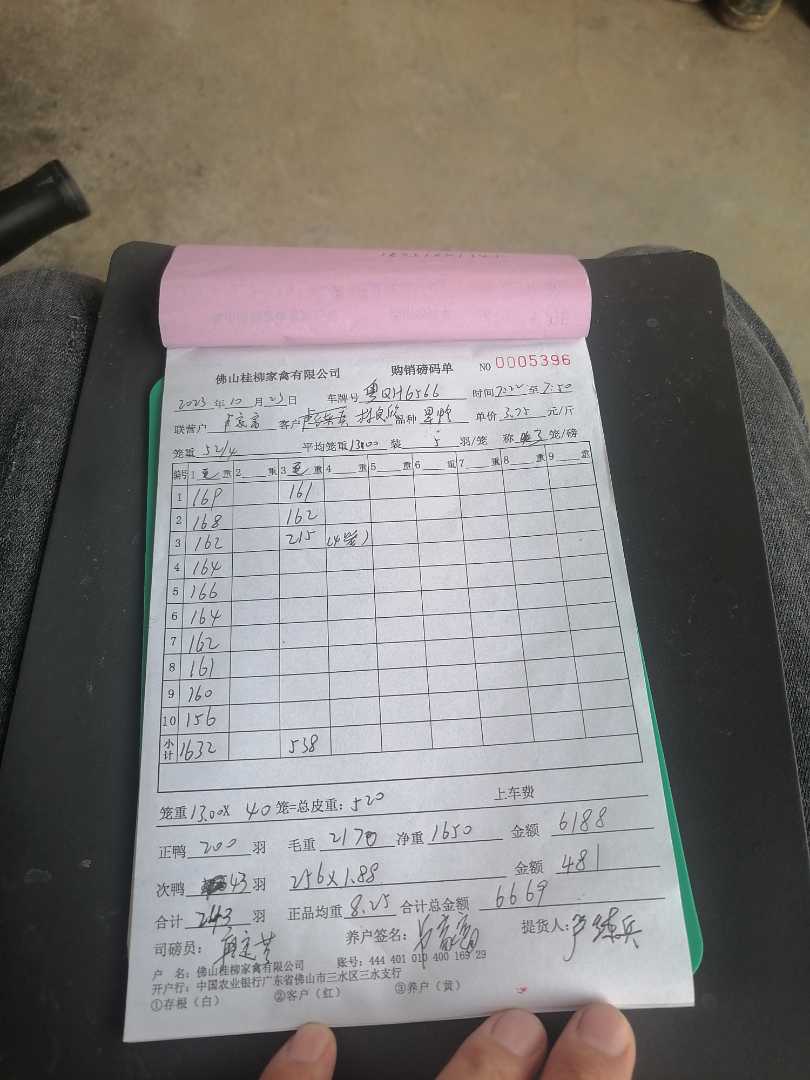 佛山桂柳家禽有限公司 购销磅码单 NO 0005396
2023年10月23日 车牌号 粤QH6566 时间 7:22至7:50
联营户 客户 品种 单价 3.75 元/斤
笼重 52/4 平均笼重 13.00 装 5 羽/笼 称 笼/磅
编号 1 毛 重 2 重 3 毛 重 4 重 5 重 6 重 7 重 8 重 9 重
1 169 161
2 168 162
3 162 215 (4笼)
4 164
5 166
6 164
7 162
8 161
9 160
10 156
小计 1632 538
笼重 13.00X 40 笼=总皮重: 520 上车费
正鸭 200 羽 毛重 2170 净重 1650 金额 6188
次鸭 43 羽 256X1.88 金额 481
合计 243 羽 正品均重 8.25 合计总金额 6669
司磅员: 养户签名: 提货人:
户 名: 佛山桂柳家禽有限公司 账号: 444 401 010 400 169 29
开户行: 中国农业银行广东省佛山市三水区三水支行
①存根(白) ②客户(红) ③养户(黄)